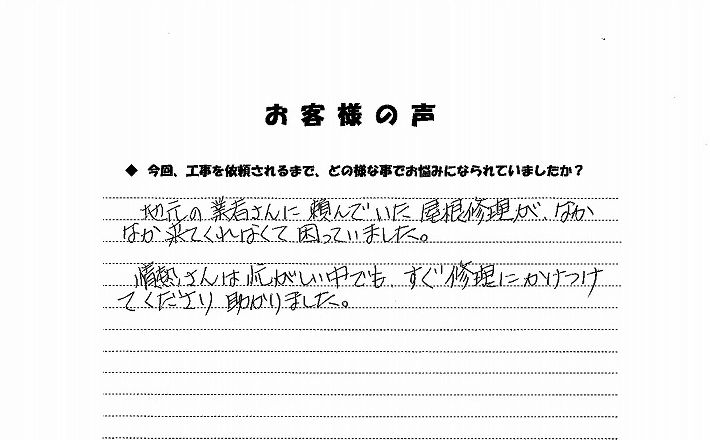 お客様の声
◆ 今回、工事を依頼されるまで、どの様な事でお悩みになられていましたか？
地元の業者さんに頼んでいた屋根修理が、なか
なか来てくれなくて困っていました。
情熱さんは忙がしい中でも、すぐ修理にかけつけ
てくださり助かりました。